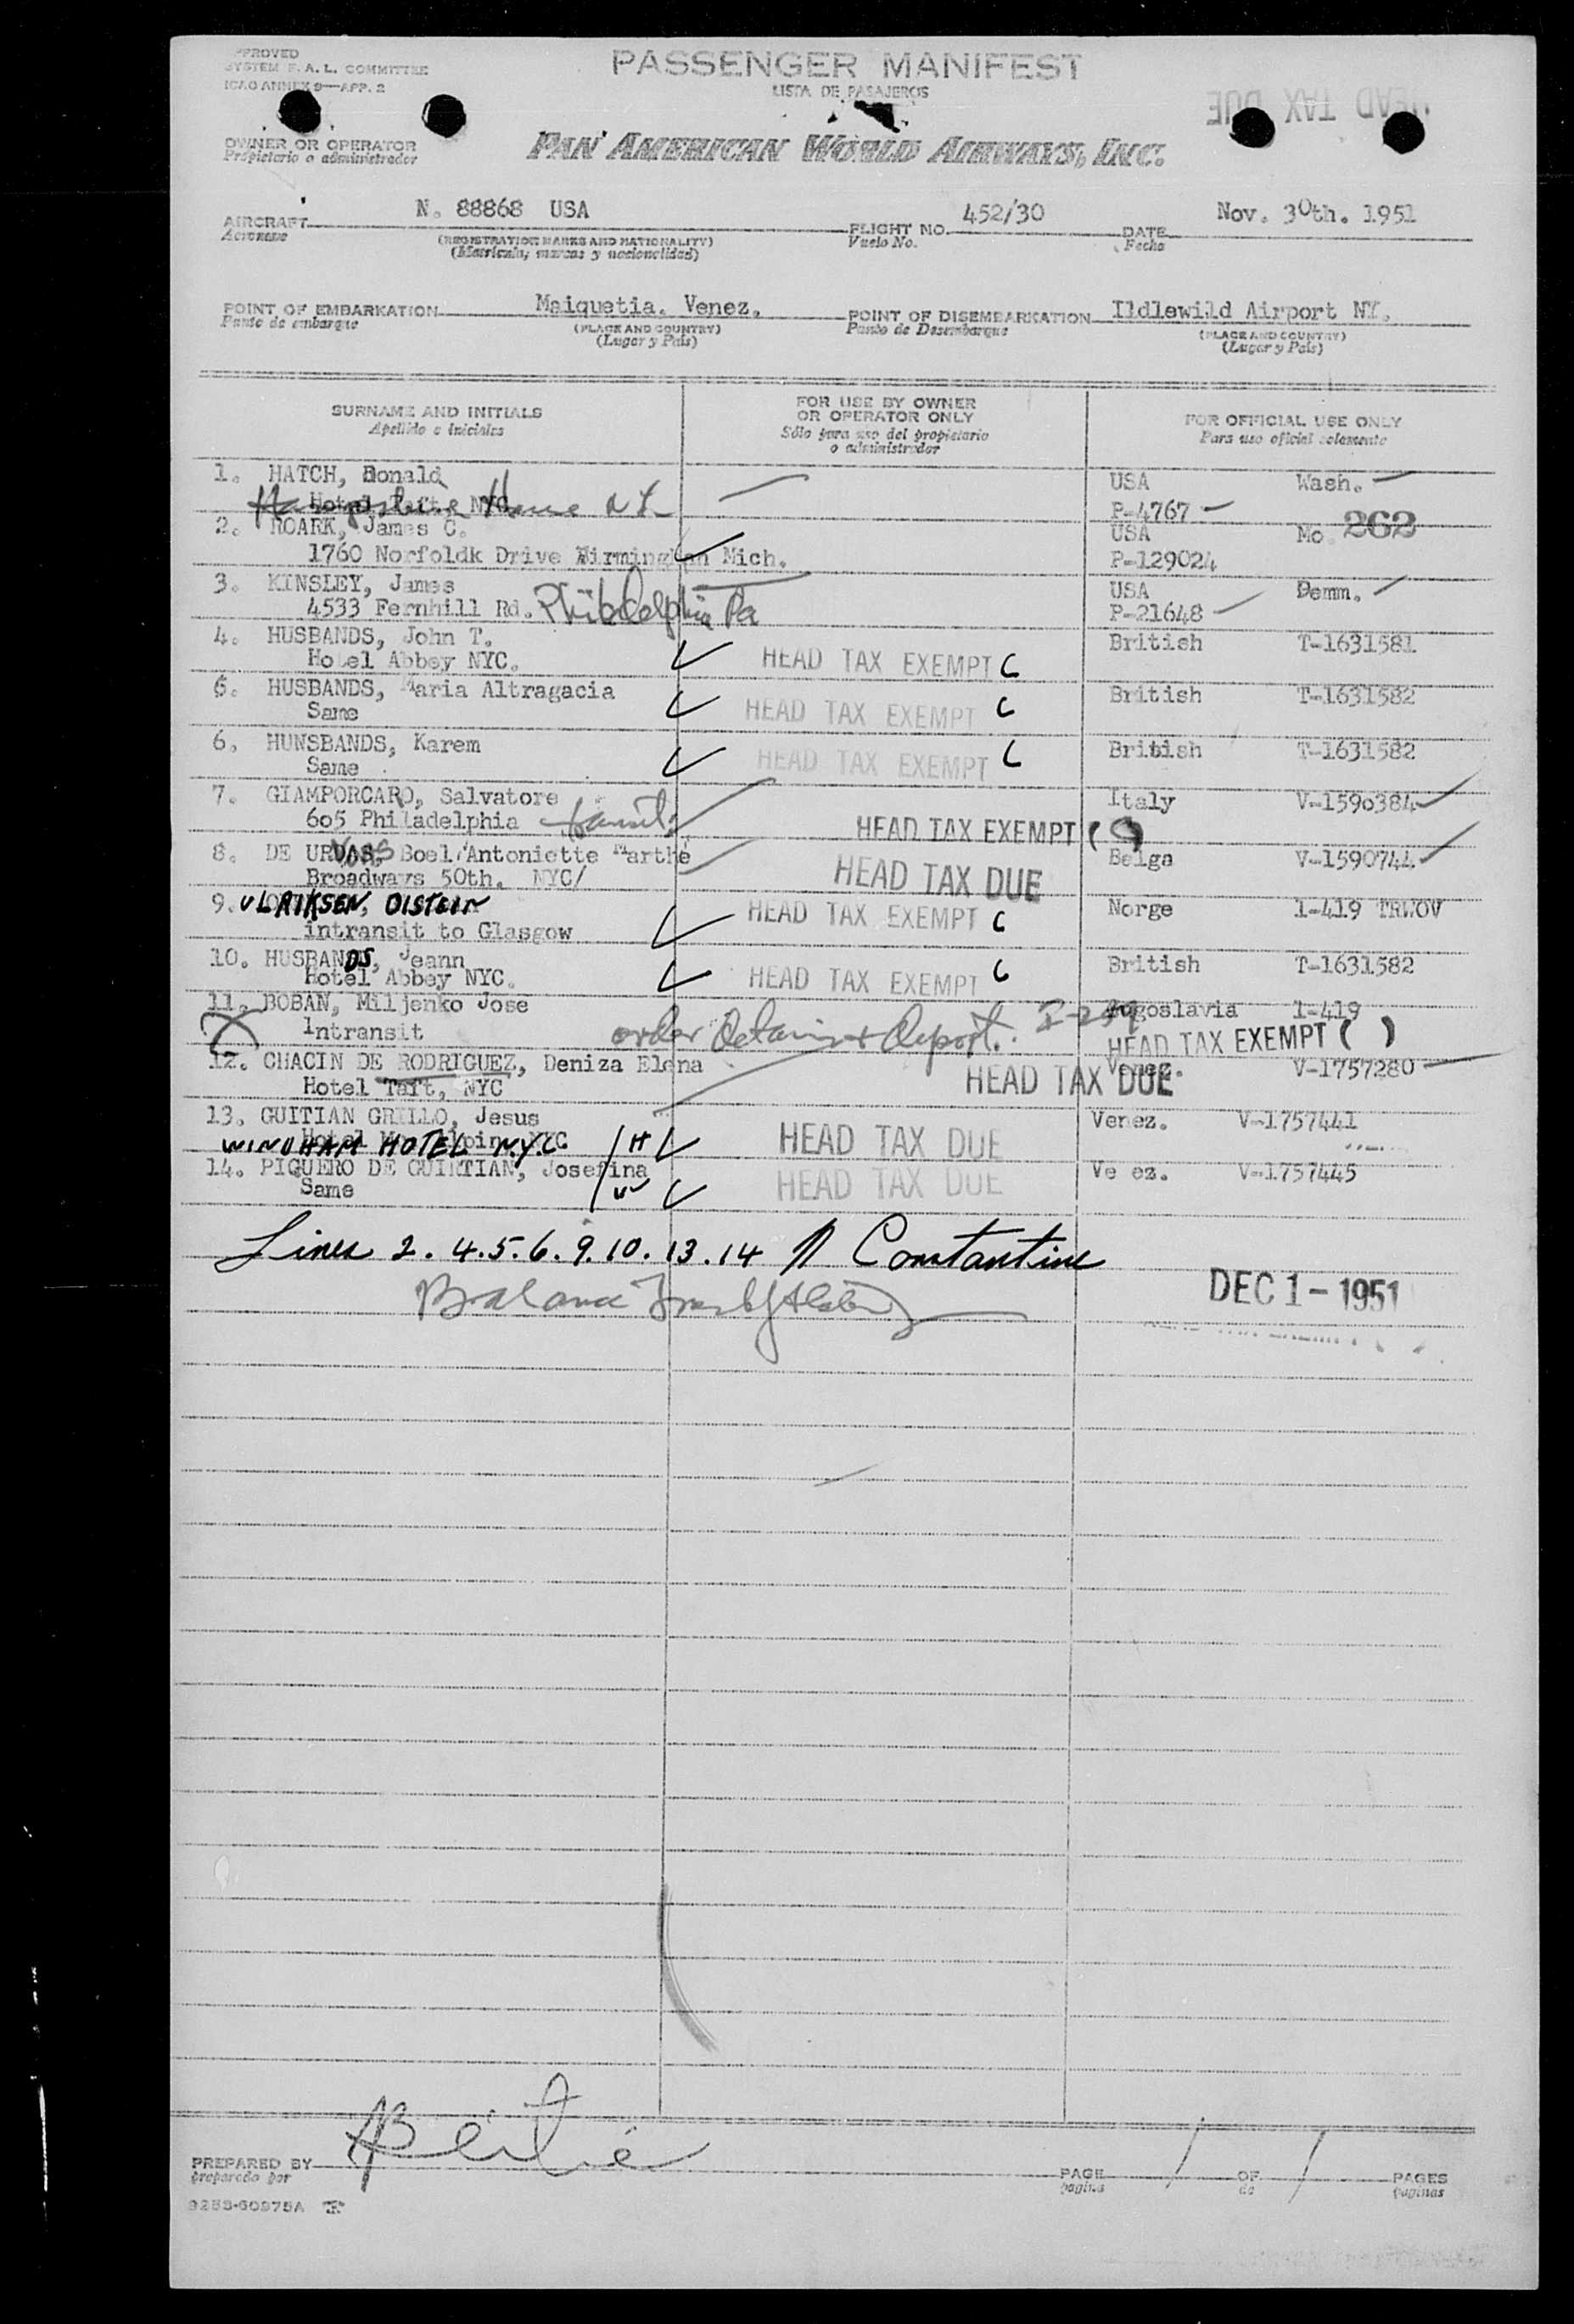 SYSTEM F. A. L. COMMITTEE
ICAO ANNEX 9—APP. 2
PASSENGER MANIFEST
LISTA DE PASAJEROS
HEAD TAX DUE
OWNER OR OPERATOR
Propietario o administrador
PAN AMERICAN WORLD AIRWAYS, INC.
AIRCRAFT N. 88868 USA FLIGHT NO. 452/30 DATE Nov. 30th. 1951
Aeronave (REGISTRATION MARKS AND NATIONALITY) Vuelo No. Fecha
(Matrícula, marcas y nacionalidad)
POINT OF EMBARKATION Maiquetia. Venez. POINT OF DISEMBARKATION Ildlewild Airport NY.
Punto de embarque (PLACE AND COUNTRY) Punto de Desembarque (PLACE AND COUNTRY)
(Lugar y País) (Lugar y País)
SURNAME AND INITIALS FOR USE BY OWNER OR OPERATOR ONLY FOR OFFICIAL USE ONLY
Apellido e iniciales Sólo para uso del propietario o administrador Para uso oficial solamente
1. HATCH, Donald USA Wash.
Hotel Taft, NYC P-4767
Hampshire House N Y
2. ROARK, James C. USA Mo. 262
1760 Norfoldk Drive Birmingham Mich. P-129024
3. KINSLEY, James USA Penn.
4533 Fernhill Rd. Philadelphia Pa P-21648
4. HUSBANDS, John T. British T-1631581
Hotel Abbey NYC. HEAD TAX EXEMPT C
5. HUSBANDS, Maria Altragacia British T-1631582
Same HEAD TAX EXEMPT C
6. HUNSBANDS, Karem British T-1631582
Same HEAD TAX EXEMPT C
7. GIAMPORCARO, Salvatore Italy V-1590384
605 Philadelphia transit HEAD TAX EXEMPT ( C )
8. DE Boel Antoniette Marthe Belga V-1590744
Broadways 50th. NYC/ HEAD TAX DUE
9. ULRIKSEN, OISTEIN HEAD TAX EXEMPT C Norge 1-419 TRWOV
intransit to Glasgow
10. HUSBANDS, Jeann British T-1631582
Hotel Abbey NYC. HEAD TAX EXEMPT C
11. BOBAN, Miljenko Jose Yugoslavia 1-419
Intransit order detain + deport. I-259 HEAD TAX EXEMPT ( )
12. CHACIN DE RODRIGUEZ, Deniza Elena Venez. V-1757280
Hotel Taft, NYC HEAD TAX DUE
13. GUITIAN GRILLO, Jesus Venez. V-1757441
WINDHAM HOTEL N.Y.C. H HEAD TAX DUE
14. PIQUERO DE GUIRTIAN, Josefina Ve ez. V-1757445
Same W HEAD TAX DUE
Lines 2. 4. 5. 6. 9. 10. 13. 14 Constantine
Balance
DEC 1 - 1951
PREPARED BY PAGE 1 OF 1 PAGES
preparado por página de páginas
9253-60975A